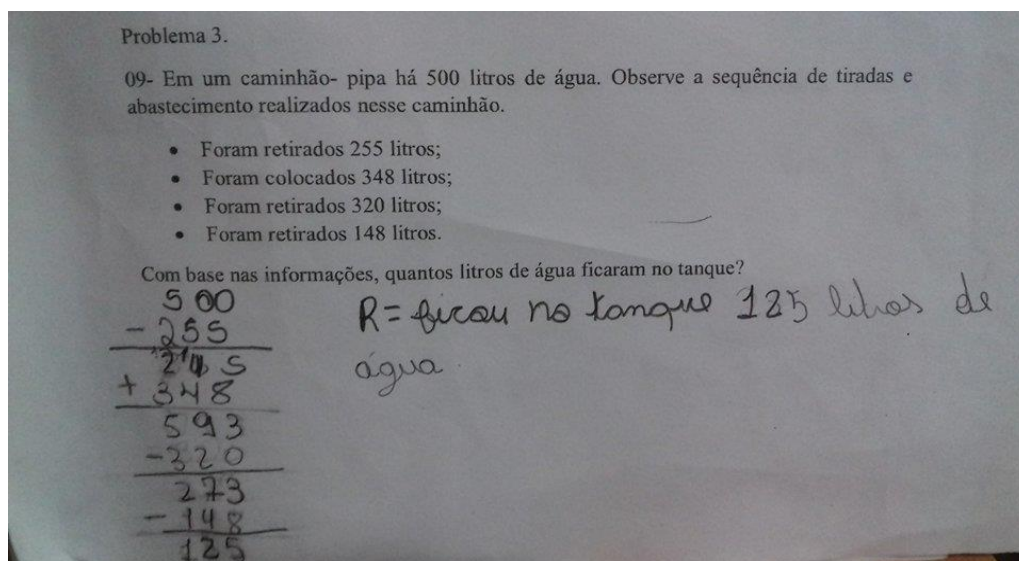 Problema 3.
09- Em um caminhão- pipa há 500 litros de água. Observe a sequência de tiradas e
abastecimento realizados nesse caminhão.
• Foram retirados 255 litros;
• Foram colocados 348 litros;
• Foram retirados 320 litros;
• Foram retirados 148 litros.
Com base nas informações, quantos litros de água ficaram no tanque?
500
- 255
245
+ 348
593
-320
273
- 148
125
R= ficou no tanque 125 litros de
água.